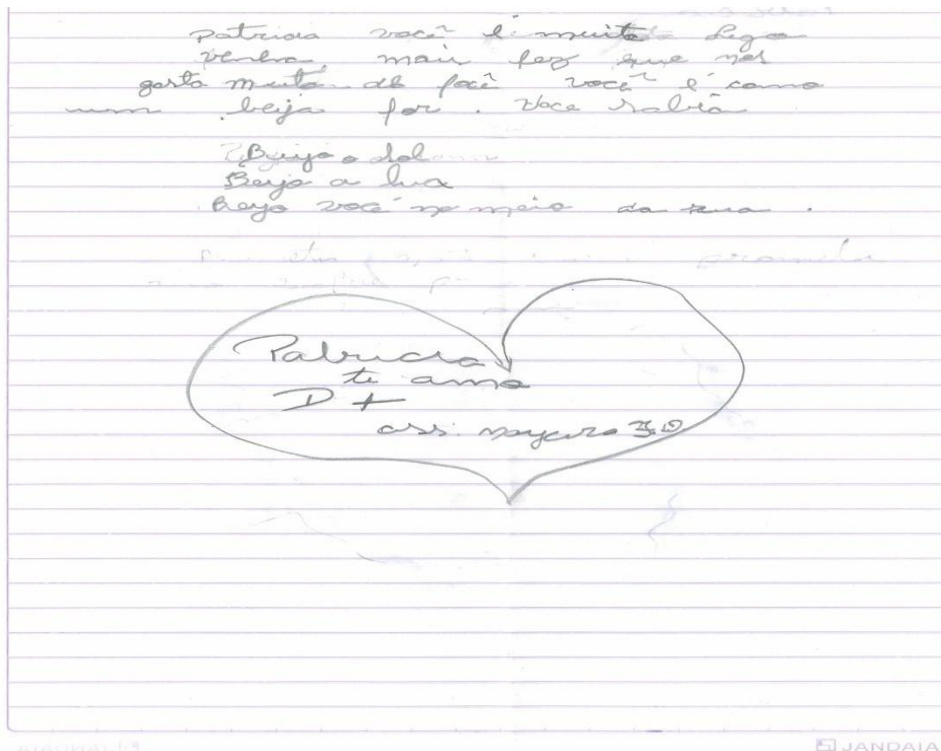 patricia você é muita lega
venha, mais fez que nos
gosta muito de focê você é como
um beija for. Voce sabia
Beijo o sol
Beijo a lua
Beijo você no meio da rua.
Patricia
te amo
D +
ass: nayara 3º
JANDAIA